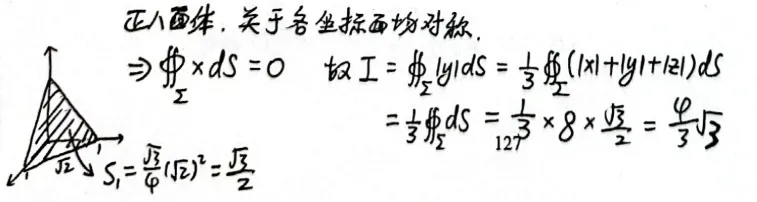 正八面体，关于各坐标面均对称.
⇒ ∯_Σ x dS = 0 故 I = ∯_Σ |y| dS = 1/3 ∯_Σ (|x|+|y|+|z|) dS
= 1/3 ∯_Σ dS = 1/3 × 8 × √3/2 = 4/3 √3
127
1 √2 1 S₁ = √3/4 (√2)² = √3/2